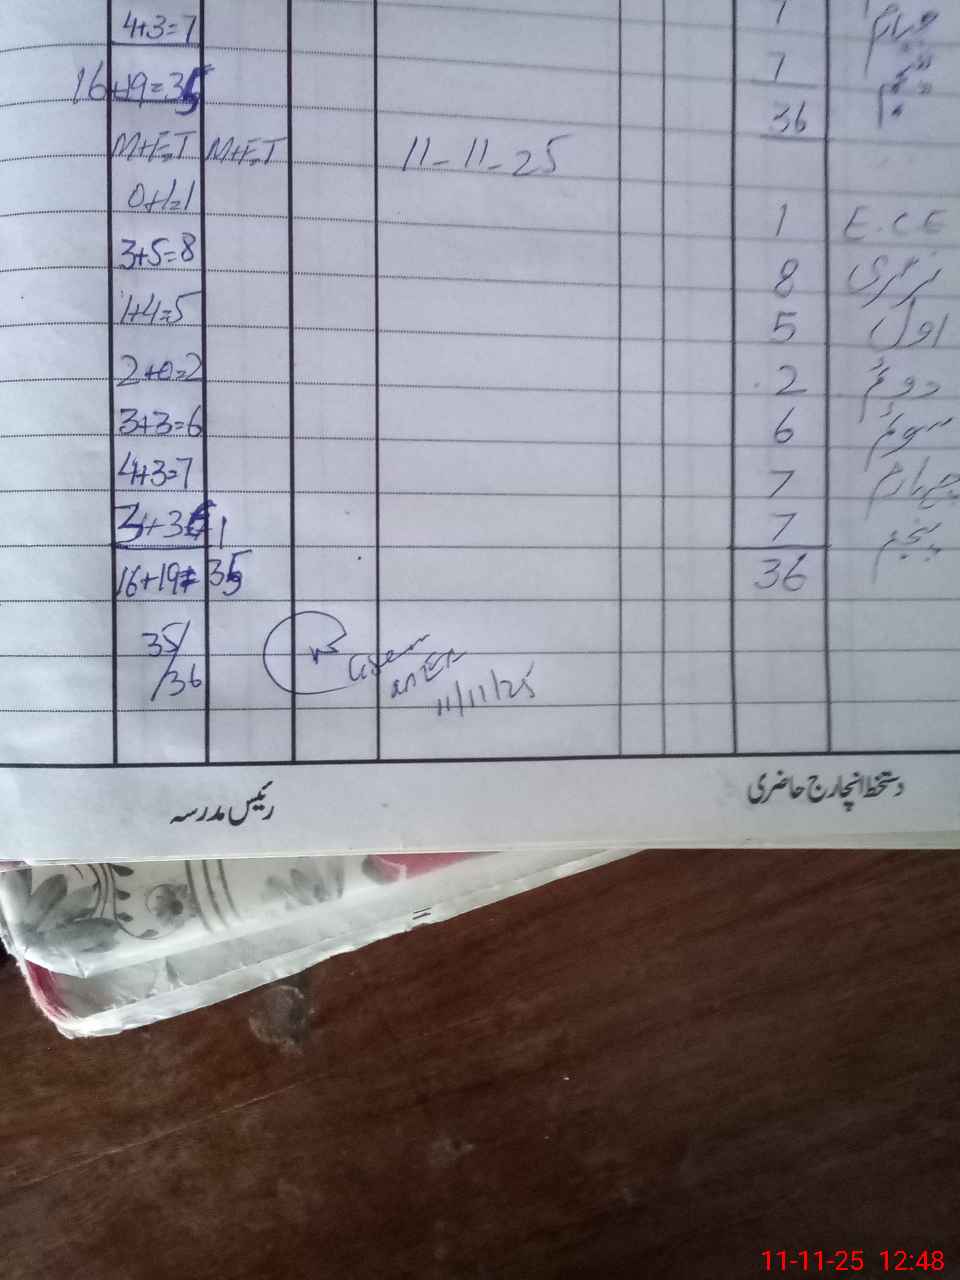 4+3=7 7
7
16+19=35 36
M+F=T M+F=T 11-11-25
0+1=1 1 E.C.E
3+5=8 8 نرسری
1+4=5 5 اول
2+0=2 2 دوئم
3+3=6 6 سوئم
4+3=7 7 چہارم
7 پنجم
16+19= 35 36
35/36
11/11/25
دستخط انچارج حاضری رئیس مدرسہ
11-11-25 12:48